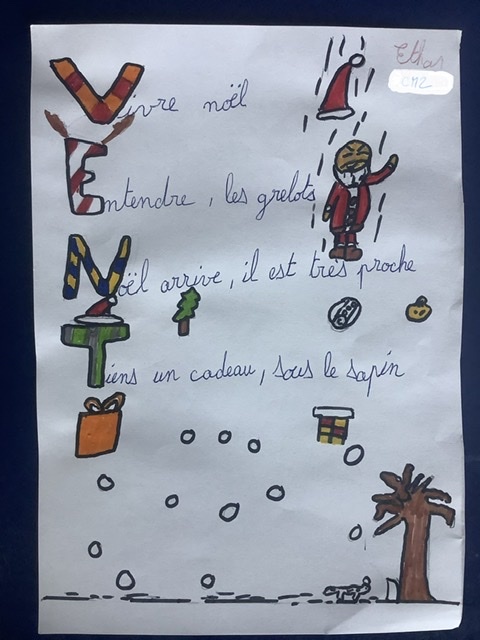 Ethan
CM2
Vivre noël
Entendre, les grelots
Noël arrive, il est très proche
Tiens un cadeau, sous le sapin